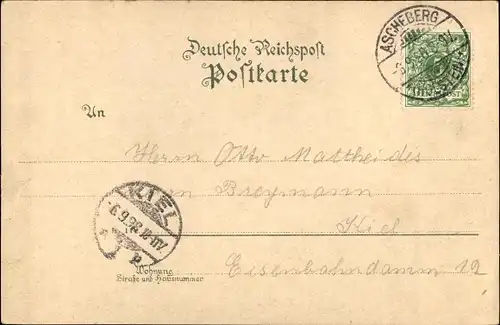 Deutsche Reichspost
Postkarte
ASCHEBERG
HOLSTEIN
REICHSPOST
An
Herrn Otto Mattheides
Breymann
Kiel
Eisenbahndamm 12
KIEL
6.9.98
Wohnung
Straße und Hausnummer